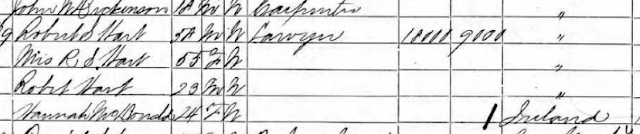 John W Dickinson M W Carpenter "
9 Robert S Hart 54 M W Lawyer 10000 9000 "
Mrs R S Hart 55 F W "
Robt Hart 23 M W "
Hannah McDonald 24 F W 1 Ireland